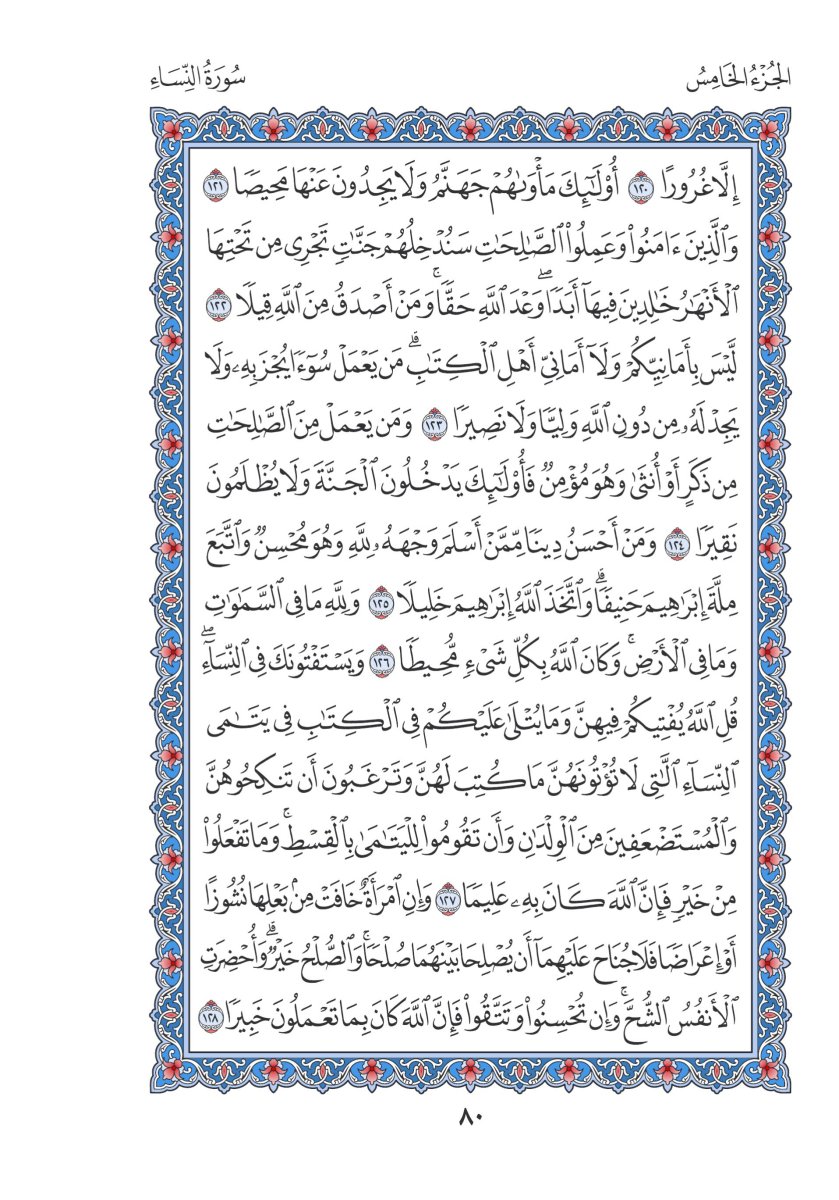 الجُزْءُ الخَامِسُ
سُورَةُ النِّسَاءِ
إِلَّا غُرُورًا ١٢٠ أُوْلَٰٓئِكَ مَأْوَىٰهُمْ جَهَنَّمُ وَلَا يَجِدُونَ عَنْهَا مَحِيصًا ١٢١
وَٱلَّذِينَ ءَامَنُوا۟ وَعَمِلُوا۟ ٱلصَّٰلِحَٰتِ سَنُدْخِلُهُمْ جَنَّٰتٍ تَجْرِى مِن تَحْتِهَا
ٱلْأَنْهَٰرُ خَٰلِدِينَ فِيهَآ أَبَدًاۖ وَعْدَ ٱللَّهِ حَقًّاۚ وَمَنْ أَصْدَقُ مِنَ ٱللَّهِ قِيلًا ١٢٢
لَّيْسَ بِأَمَانِيِّكُمْ وَلَآ أَمَانِىِّ أَهْلِ ٱلْكِتَٰبِۗ مَن يَعْمَلْ سُوٓءًا يُجْزَ بِهِۦ وَلَا
يَجِدْ لَهُۥ مِن دُونِ ٱللَّهِ وَلِيًّا وَلَا نَصِيرًا ١٢٣ وَمَن يَعْمَلْ مِنَ ٱلصَّٰلِحَٰتِ
مِن ذَكَرٍ أَوْ أُنثَىٰ وَهُوَ مُؤْمِنٌ فَأُوْلَٰٓئِكَ يَدْخُلُونَ ٱلْجَنَّةَ وَلَا يُظْلَمُونَ
نَقِيرًا ١٢٤ وَمَنْ أَحْسَنُ دِينًا مِّمَّنْ أَسْلَمَ وَجْهَهُۥ لِلَّهِ وَهُوَ مُحْسِنٌ وَٱتَّبَعَ
مِلَّةَ إِبْرَٰهِيمَ حَنِيفًاۗ وَٱتَّخَذَ ٱللَّهُ إِبْرَٰهِيمَ خَلِيلًا ١٢٥ وَلِلَّهِ مَا فِى ٱلسَّمَٰوَٰتِ
وَمَا فِى ٱلْأَرْضِۚ وَكَانَ ٱللَّهُ بِكُلِّ شَىْءٍ مُّحِيطًا ١٢٦ وَيَسْتَفْتُونَكَ فِى ٱلنِّسَآءِۖ
قُلِ ٱللَّهُ يُفْتِيكُمْ فِيهِنَّ وَمَا يُتْلَىٰ عَلَيْكُمْ فِى ٱلْكِتَٰبِ فِى يَتَٰمَى
ٱلنِّسَآءِ ٱلَّٰتِى لَا تُؤْتُونَهُنَّ مَا كُتِبَ لَهُنَّ وَتَرْغَبُونَ أَن تَنكِحُوهُنَّ
وَٱلْمُسْتَضْعَفِينَ مِنَ ٱلْوِلْدَٰنِ وَأَن تَقُومُوا۟ لِلْيَتَٰمَىٰ بِٱلْقِسْطِۚ وَمَا تَفْعَلُوا۟
مِنْ خَيْرٍ فَإِنَّ ٱللَّهَ كَانَ بِهِۦ عَلِيمًا ١٢٧ وَإِنِ ٱمْرَأَةٌ خَافَتْ مِنۢ بَعْلِهَا نُشُوزًا
أَوْ إِعْرَاضًا فَلَا جُنَاحَ عَلَيْهِمَآ أَن يُصْلِحَا بَيْنَهُمَا صُلْحًاۚ وَٱلصُّلْحُ خَيْرٌۗ وَأُحْضِرَتِ
ٱلْأَنفُسُ ٱلشُّحَّۚ وَإِن تُحْسِنُوا۟ وَتَتَّقُوا۟ فَإِنَّ ٱللَّهَ كَانَ بِمَا تَعْمَلُونَ خَبِيرًا ١٢٨
٨٠